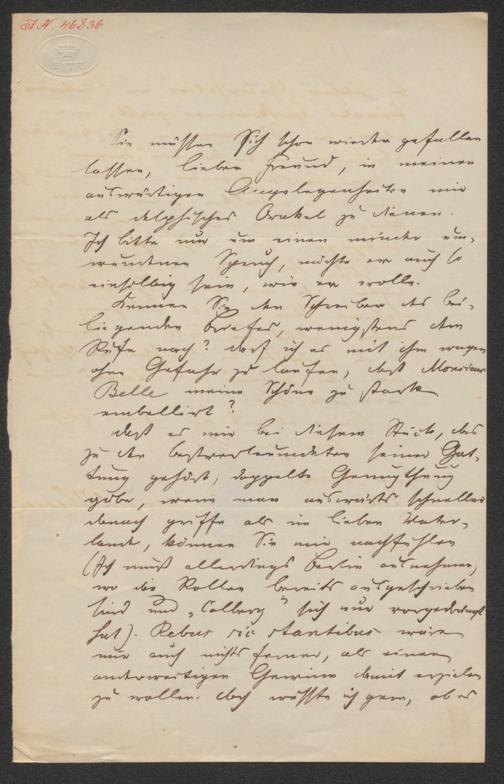 I.N. 46836
BATH
Sie müssen Sich schon wieder gefallen
lassen, lieber Freund, in meinen
auswärtigen Angelegenheiten mir
als delphisches Orakel zu dienen.
Ich bitte nur um einen minder um-
wundenen Spruch, möchte er auch so
einsilbig sein, wie er wolle.
Kennen Sie den Schreiber des bei-
liegenden Briefes, wenigstens dem
Rufe nach? darf ich es mit ihm wagen
ohne Gefahr zu laufen, daß Monsieur
Belle meine Schöne zu stark
embellirt?
daß es mir bei diesem Stück, das
zu den bestverleumdeten seiner Gat-
tung gehört, doppelte Genugthuung
gäbe, wenn man auswärts schneller
danach griffe als im lieben Vater-
lande, können Sie mir nachfühlen
(Ich muß allerdings Berlin ausnehmen,
wo die Rollen bereits ausgeschrieben
sind und „Colberg" sich nur vorgedrängt
hat). Rebus sic stantibus wäre
mir auch nichts ferner, als einen
anderweitigen Gewinn damit erzielen
zu wollen. doch wüßte ich gern, ob es